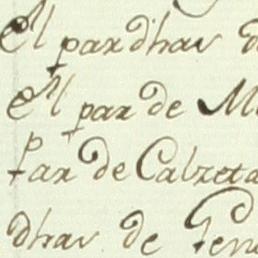 El par dhas d
El par de M
Par de Calzeta
dhas de